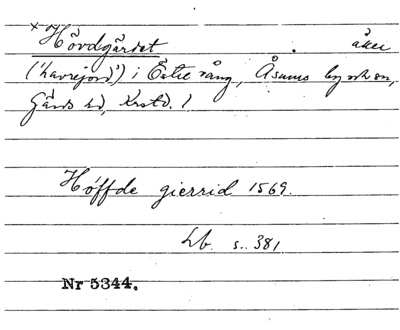 × Hövdgärdet . åker
("havrejord") i Östre vång, Åsums by och sn,
Gärds hd, Krstd. l
Höffde giersid 1569.
Lb s. 381
Nr 5344.